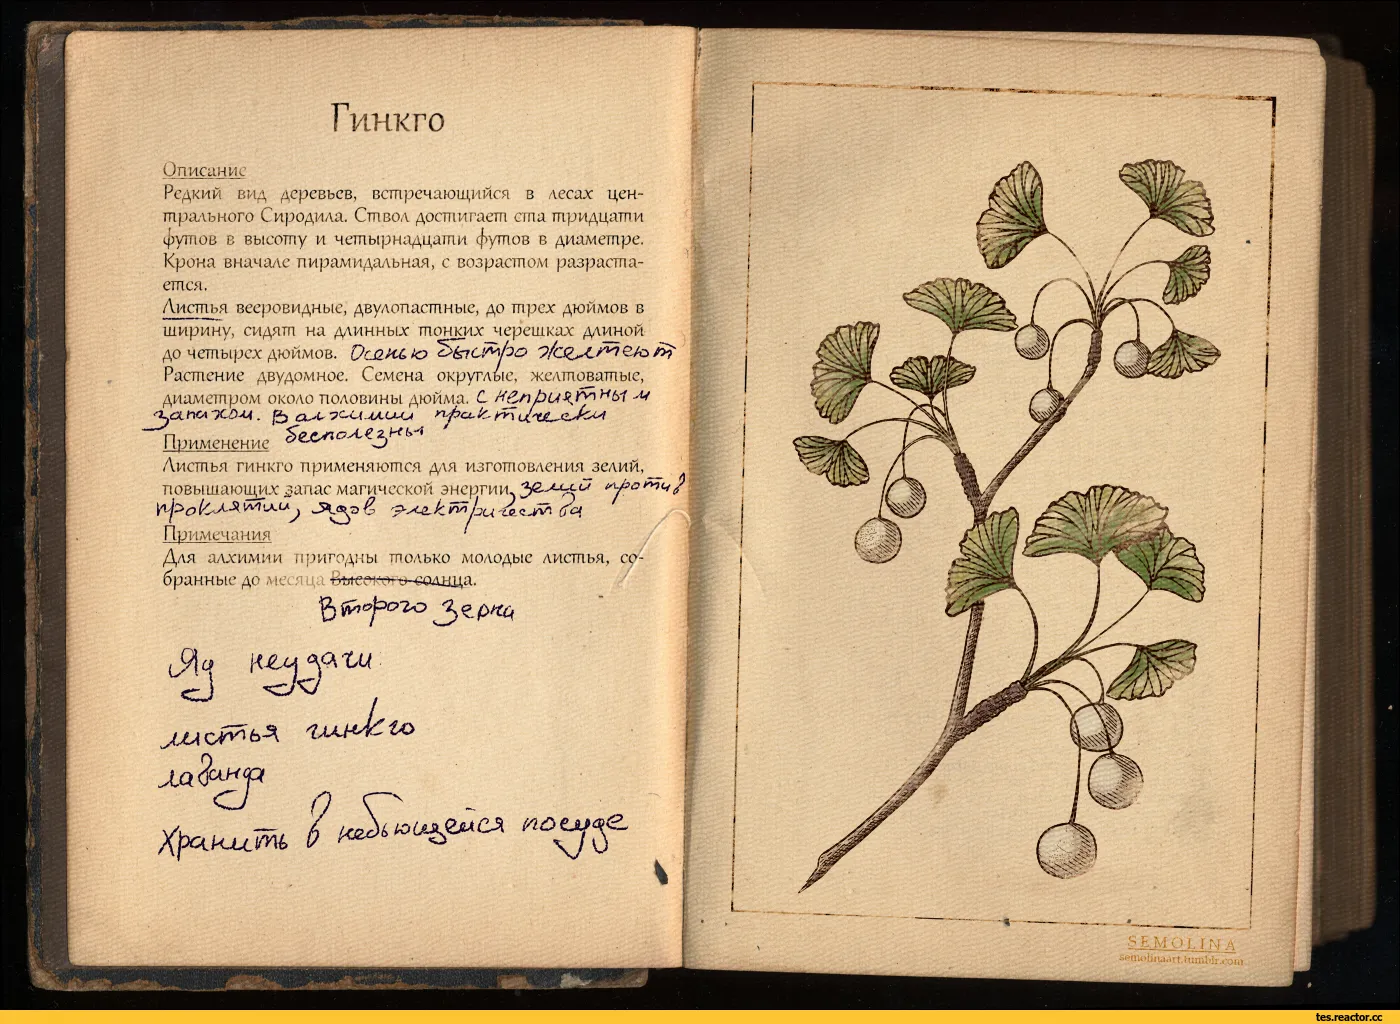 Гинкго
Описание
Редкий вид деревьев, встречающийся в лесах цен-
трального Сиродила. Ствол достигает ста тридцати
футов в высоту и четырнадцати футов в диаметре.
Крона вначале пирамидальная, с возрастом разраста-
ется.
Листья вееровидные, двулопастные, до трех дюймов в
ширину, сидят на длинных тонких черешках длиной
до четырех дюймов. Осенью быстро желтеют
Растение двудомное. Семена округлые, желтоватые,
диаметром около половины дюйма. с неприятным
запахом. В алхимии практически
бесполезны
Применение
Листья гинкго применяются для изготовления зелий,
повышающих запас магической энергии, зелий против
проклятий, ядов электричества
Примечания
Для алхимии пригодны только молодые листья, со-
бранные до месяца Высокого солнца.
Второго Зерна
Яд неудачи
листья гинкго
лаванда
Хранить в небьющейся посуде
SEMOLINA
semolinaart.tumblr.com
tes.reactor.cc